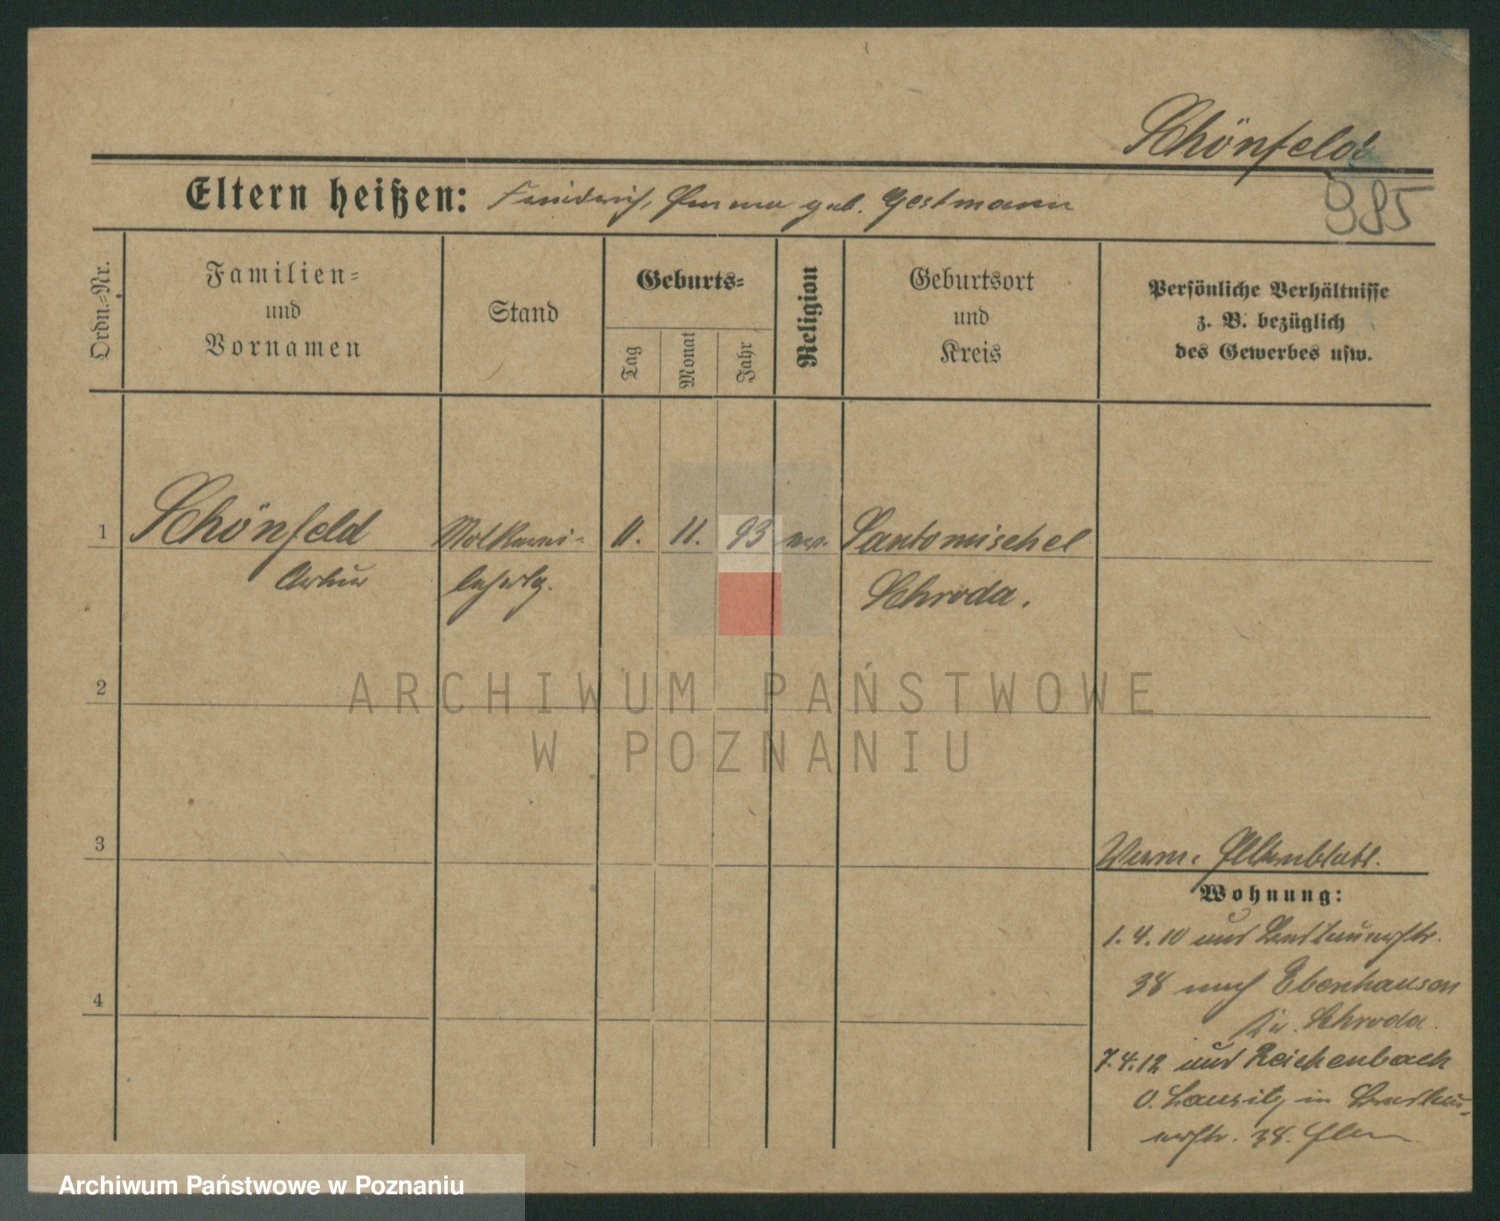 Schönfeld
985
Eltern heißen: Friedrich, Emma geb. Gestmann
Ordn.-Nr.
Familien-
und
Vornamen
Stand
Geburts-
Tag
Monat
Jahr
Religion
Geburtsort
und
Kreis
Persönliche Verhältnisse
z. B. bezüglich
des Gewerbes usw.
1
Schönfeld
Artur
Molkerei-
lehrlg.
11.
11.
93
ev.
Santomischel
Schroda.
2
3
4
Verm.
Wohnung:
1.4.10 aus
38 nach Ebenhausen
Kr. Schroda.
7.4.12 aus Reichenbach
O. Lausitz in
38.
ARCHIWUM PAŃSTWOWE
W POZNANIU
Archiwum Państwowe w Poznaniu